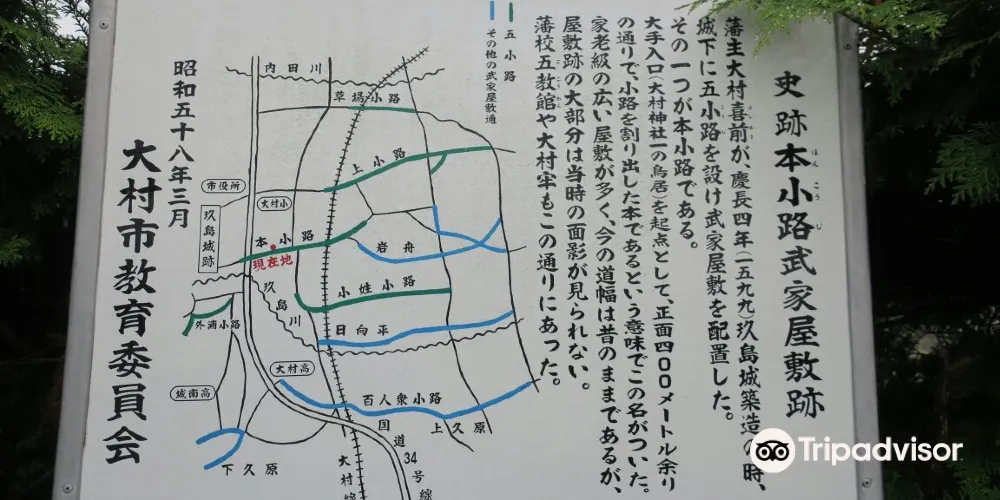 史跡本小路武家屋敷跡
ほんこうじ
藩主大村喜前が、慶長四年(一五九九)玖島城築造の時、
よしあき
城下に五小路を設け武家屋敷を配置した。
その一つが本小路である。
大手入口(大村神社一の鳥居)を起点として、正面四〇〇メートル余り
の通りで、小路を割り出した本であるという意味でこの名がついた。
家老級の広い屋敷が多く、今の道幅は昔のままであるが、
屋敷跡の大部分は当時の面影が見られない。
藩校五教館や大村牢もこの通りにあった。
五小路
その他の武家屋敷通
内田川
草場小路
上小路
市役所
大村小
玖島城跡
本小路
現在地
岩舟
玖島川
小姓小路
外浦小路
日向平
大村高
城南高
百人衆小路
上久原
下久原
国道34号線
大村線
昭和五十八年三月
大村市教育委員会
Tripadvisor